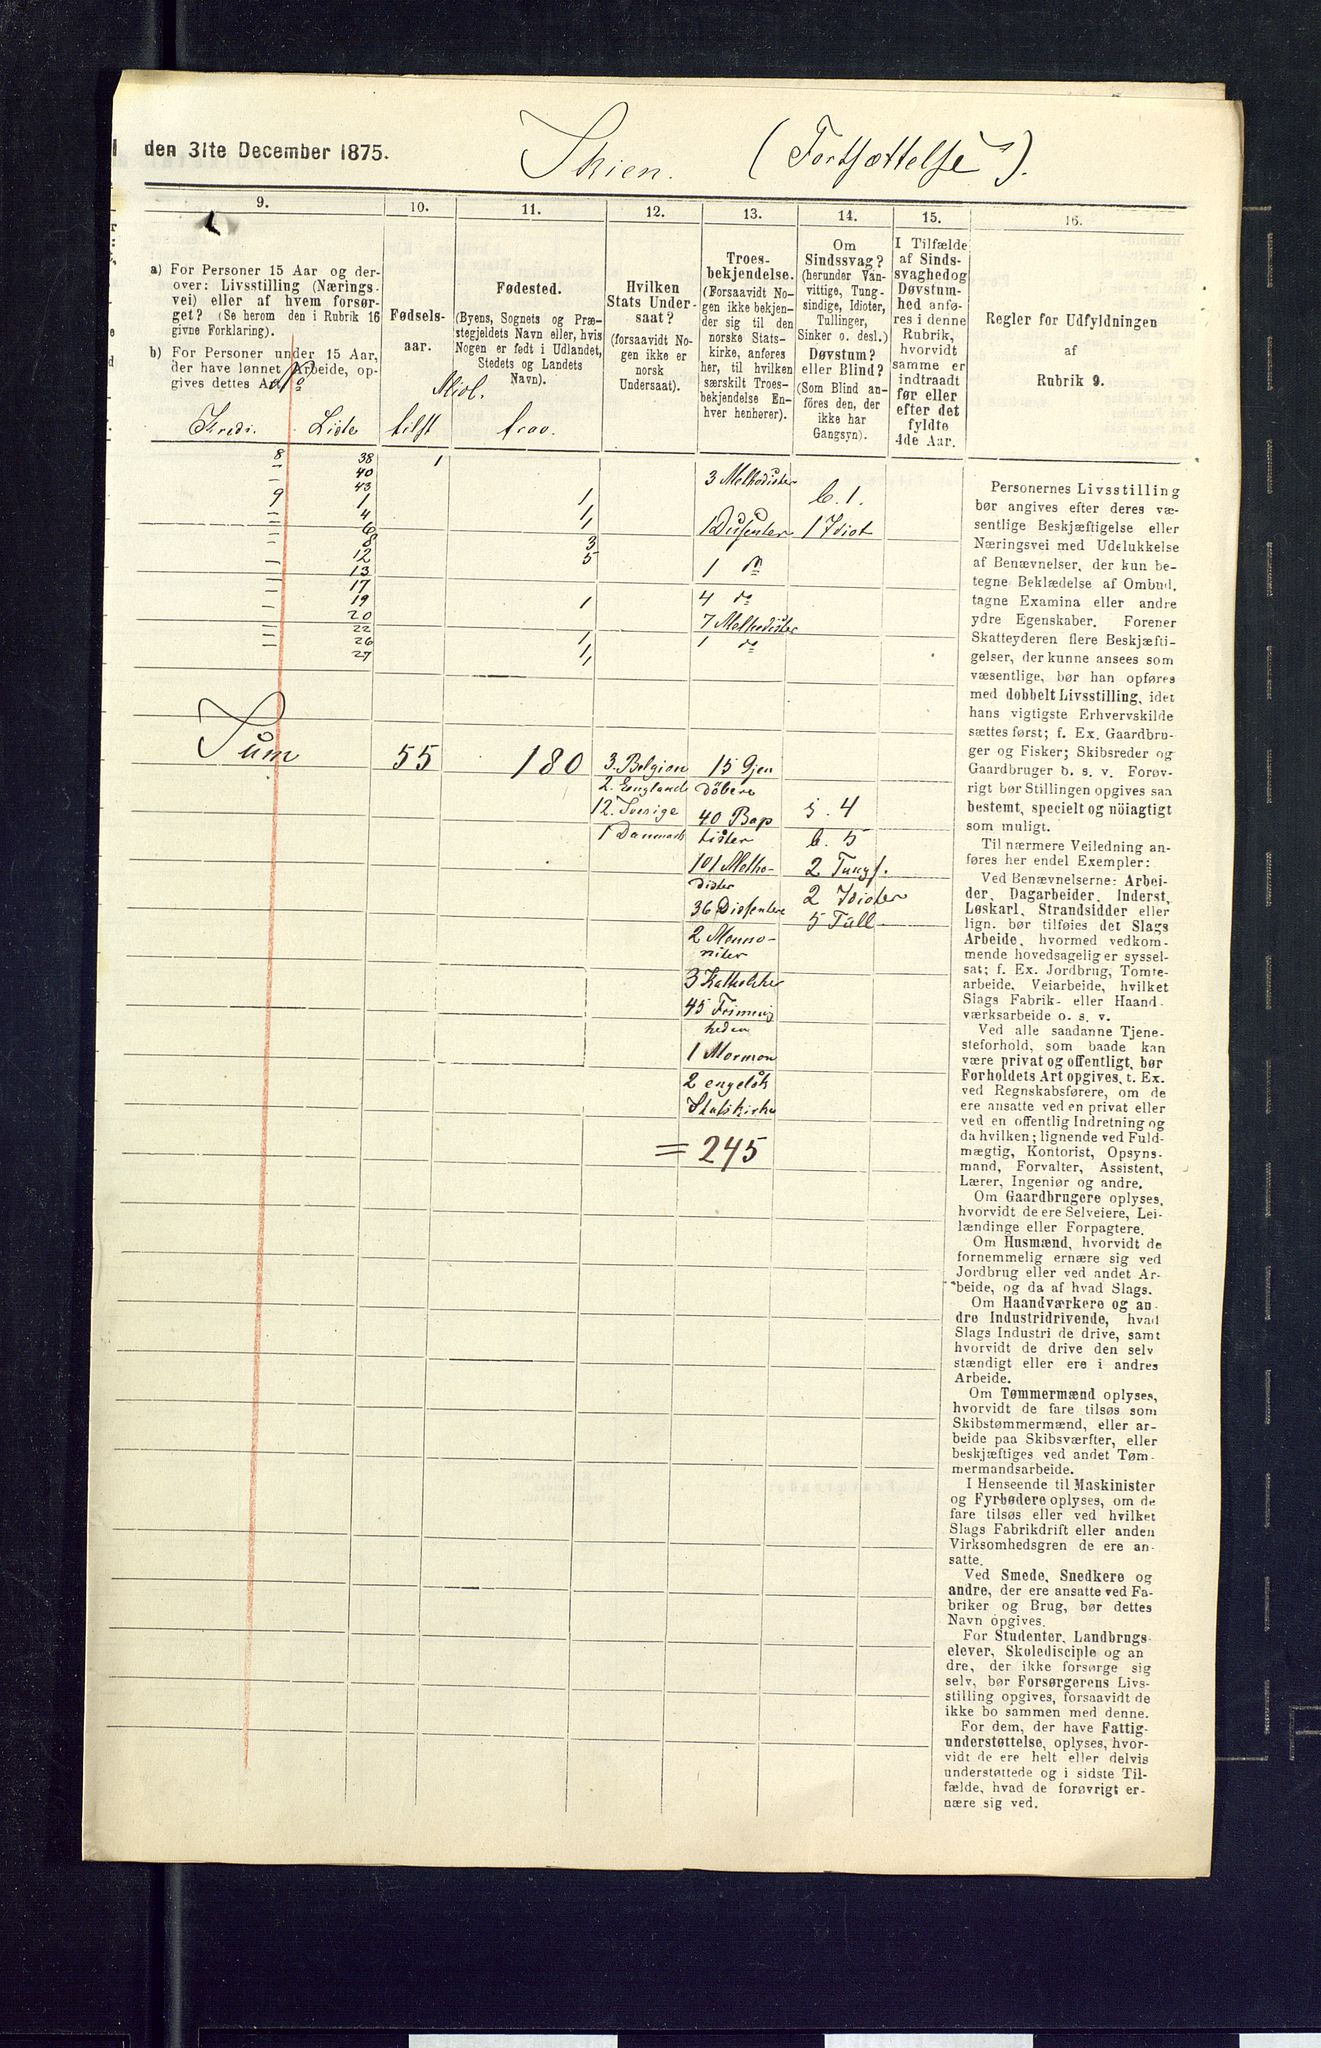 den 31te December 1875.
Skien. (Fortsættelse).
9.
a) For Personer 15 Aar og der-
over: Livsstilling (Nærings-
vei) eller af hvem forsør-
get? (Se herom den i Rubrik 16
givne Forklaring).
b) For Personer under 15 Aar,
der have lønnet Arbeide, op-
gives dettes Ar
No
Kreds. Liste
10.
Fødsels-
aar.
Midl.
tilst
11.
Fødested.
(Byens, Sognets og Præ-
stegjeldets Navn eller, hvis
Nogen er født i Udlandet,
Stedets og Landets
Navn).
frav.
12.
Hvilken
Stats Under-
saat?
(forsaavidt No-
gen ikke er
norsk
Undersaat).
13.
Troes-
bekjendelse.
(Forsaavidt No-
gen ikke bekjen-
der sig til den
norske Stats-
kirke, anføres
her, til hvilken
særskilt Troes-
bekjendelse En-
hver henhører).
14.
Om
Sindssvag?
(herunder Van-
vittige, Tung-
sindige, Idioter,
Tullinger,
Sinker o. desl.)
Døvstum?
eller Blind?
(Som Blind an-
føres den, der
ikke har
Gangsyn).
15.
I Tilfælde
af Sinds-
svaghed og
Døvstum-
hed anfø-
res i denne
Rubrik,
hvorvidt
samme er
indtraadt
før eller
efter det
fyldte
4de Aar.
16.
Regler for Udfyldningen
af
Rubrik 9.
8 38 1
" 40 3 Methodister
" 43 b. 1.
9 1 1
" 4 1 1 Dissenter 1 Idiot
" 6
" 8 3
" 12 5 1 do
" 13
" 17 4 do
" 19 1
" 20 7 Methodister
" 22
" 26 1 1 do
" 27 1
Sum 55 180 3. Belgien 15 Gjen
2. England døbere
12. Sverige 40 Bap s. 4
1 Danmark tister b. 5
101 Metho- 2 Tungs.
dister
36 Dissentere 2 Idioter
5 Tull
2 Menno-
niter
3 Katholiker
45 Frimenig
heden
1 Mormon
2 engelsk
Statskirke
= 245
Personernes Livsstilling
bør angives efter deres væ-
sentlige Beskjæftigelse eller
Næringsvei med Udelukkelse
af Benævnelser, der kun be-
tegne Beklædelse af Ombud,
tagne Examina eller andre
ydre Egenskaber. Forener
Skatteyderen flere Beskjæfti-
gelser, der kunne ansees som
væsentlige, bør han opføres
med dobbelt Livsstilling, idet
hans vigtigste Erhvervskilde
sættes først; f. Ex. Gaardbru-
ger og Fisker; Skibsreder og
Gaardbruger o. s. v. Forøv-
rigt bør Stillingen opgives saa
bestemt, specielt og nöiagtigt
som muligt.
Til nærmere Veiledning an-
føres her endel Exempler:
Ved Benævnelserne: Arbei-
der, Dagarbeider, Inderst,
Løskarl, Strandsidder eller
lign. bør tilføies det Slags
Arbeide, hvormed vedkom-
mende hovedsagelig er syssel-
sat; f. Ex. Jordbrug, Tomte-
arbeide, Veiarbeide, hvilket
Slags Fabrik- eller Haand-
værksarbeide o. s. v.
Ved alle saadanne Tjene-
steforhold, som baade kan
være privat og offentligt, bør
Forholdets Art opgives, t. Ex.
ved Regnskabsførere, om de
ere ansatte ved en privat eller
ved en offentlig Indretning og
da hvilken; lignende ved Fuld-
mægtig, Kontorist, Opsyns-
mand, Forvalter, Assistent,
Lærer, Ingeniør og andre.
Om Gaardbrugere oplyses,
hvorvidt de ere Selveiere, Lei-
lændinge eller Forpagtere.
Om Husmænd, hvorvidt de
fornemmelig ernære sig ved
Jordbrug eller ved andet Ar-
beide, og da af hvad Slags.
Om Haandværkere og an-
dre Industridrivende, hvad
Slags Industri de drive, samt
hvorvidt de drive den selv
stændigt eller ere i andres
Arbeide.
Om Tømmermænd oplyses,
hvorvidt de fare tilsøs som
Skibstømmermænd, eller ar-
beide paa Skibsværfter, eller
beskjæftiges ved andet Tøm-
mermandsarbeide.
I Henseende til Maskinister
og Fyrbødere oplyses, om de
fare tilsøs eller ved hvilket
Slags Fabrikdrift eller anden
Virksomhedsgren de ere an-
satte.
Ved Smede, Snedkere og
andre, der ere ansatte ved Fa-
briker og Brug, bør dettes
Navn opgives.
For Studenter, Landbrugs-
elever, Skoledisciple og an-
dre, der ikke forsørge sig
selv, bør Forsørgerens Livs-
stilling opgives, forsaavidt de
ikke bo sammen med denne.
For dem, der have Fattig-
understøttelse, oplyses, hvor-
vidt de ere helt eller delvis
understøttede og i sidste Til-
fælde, hvad de forøvrigt er-
nære sig ved.